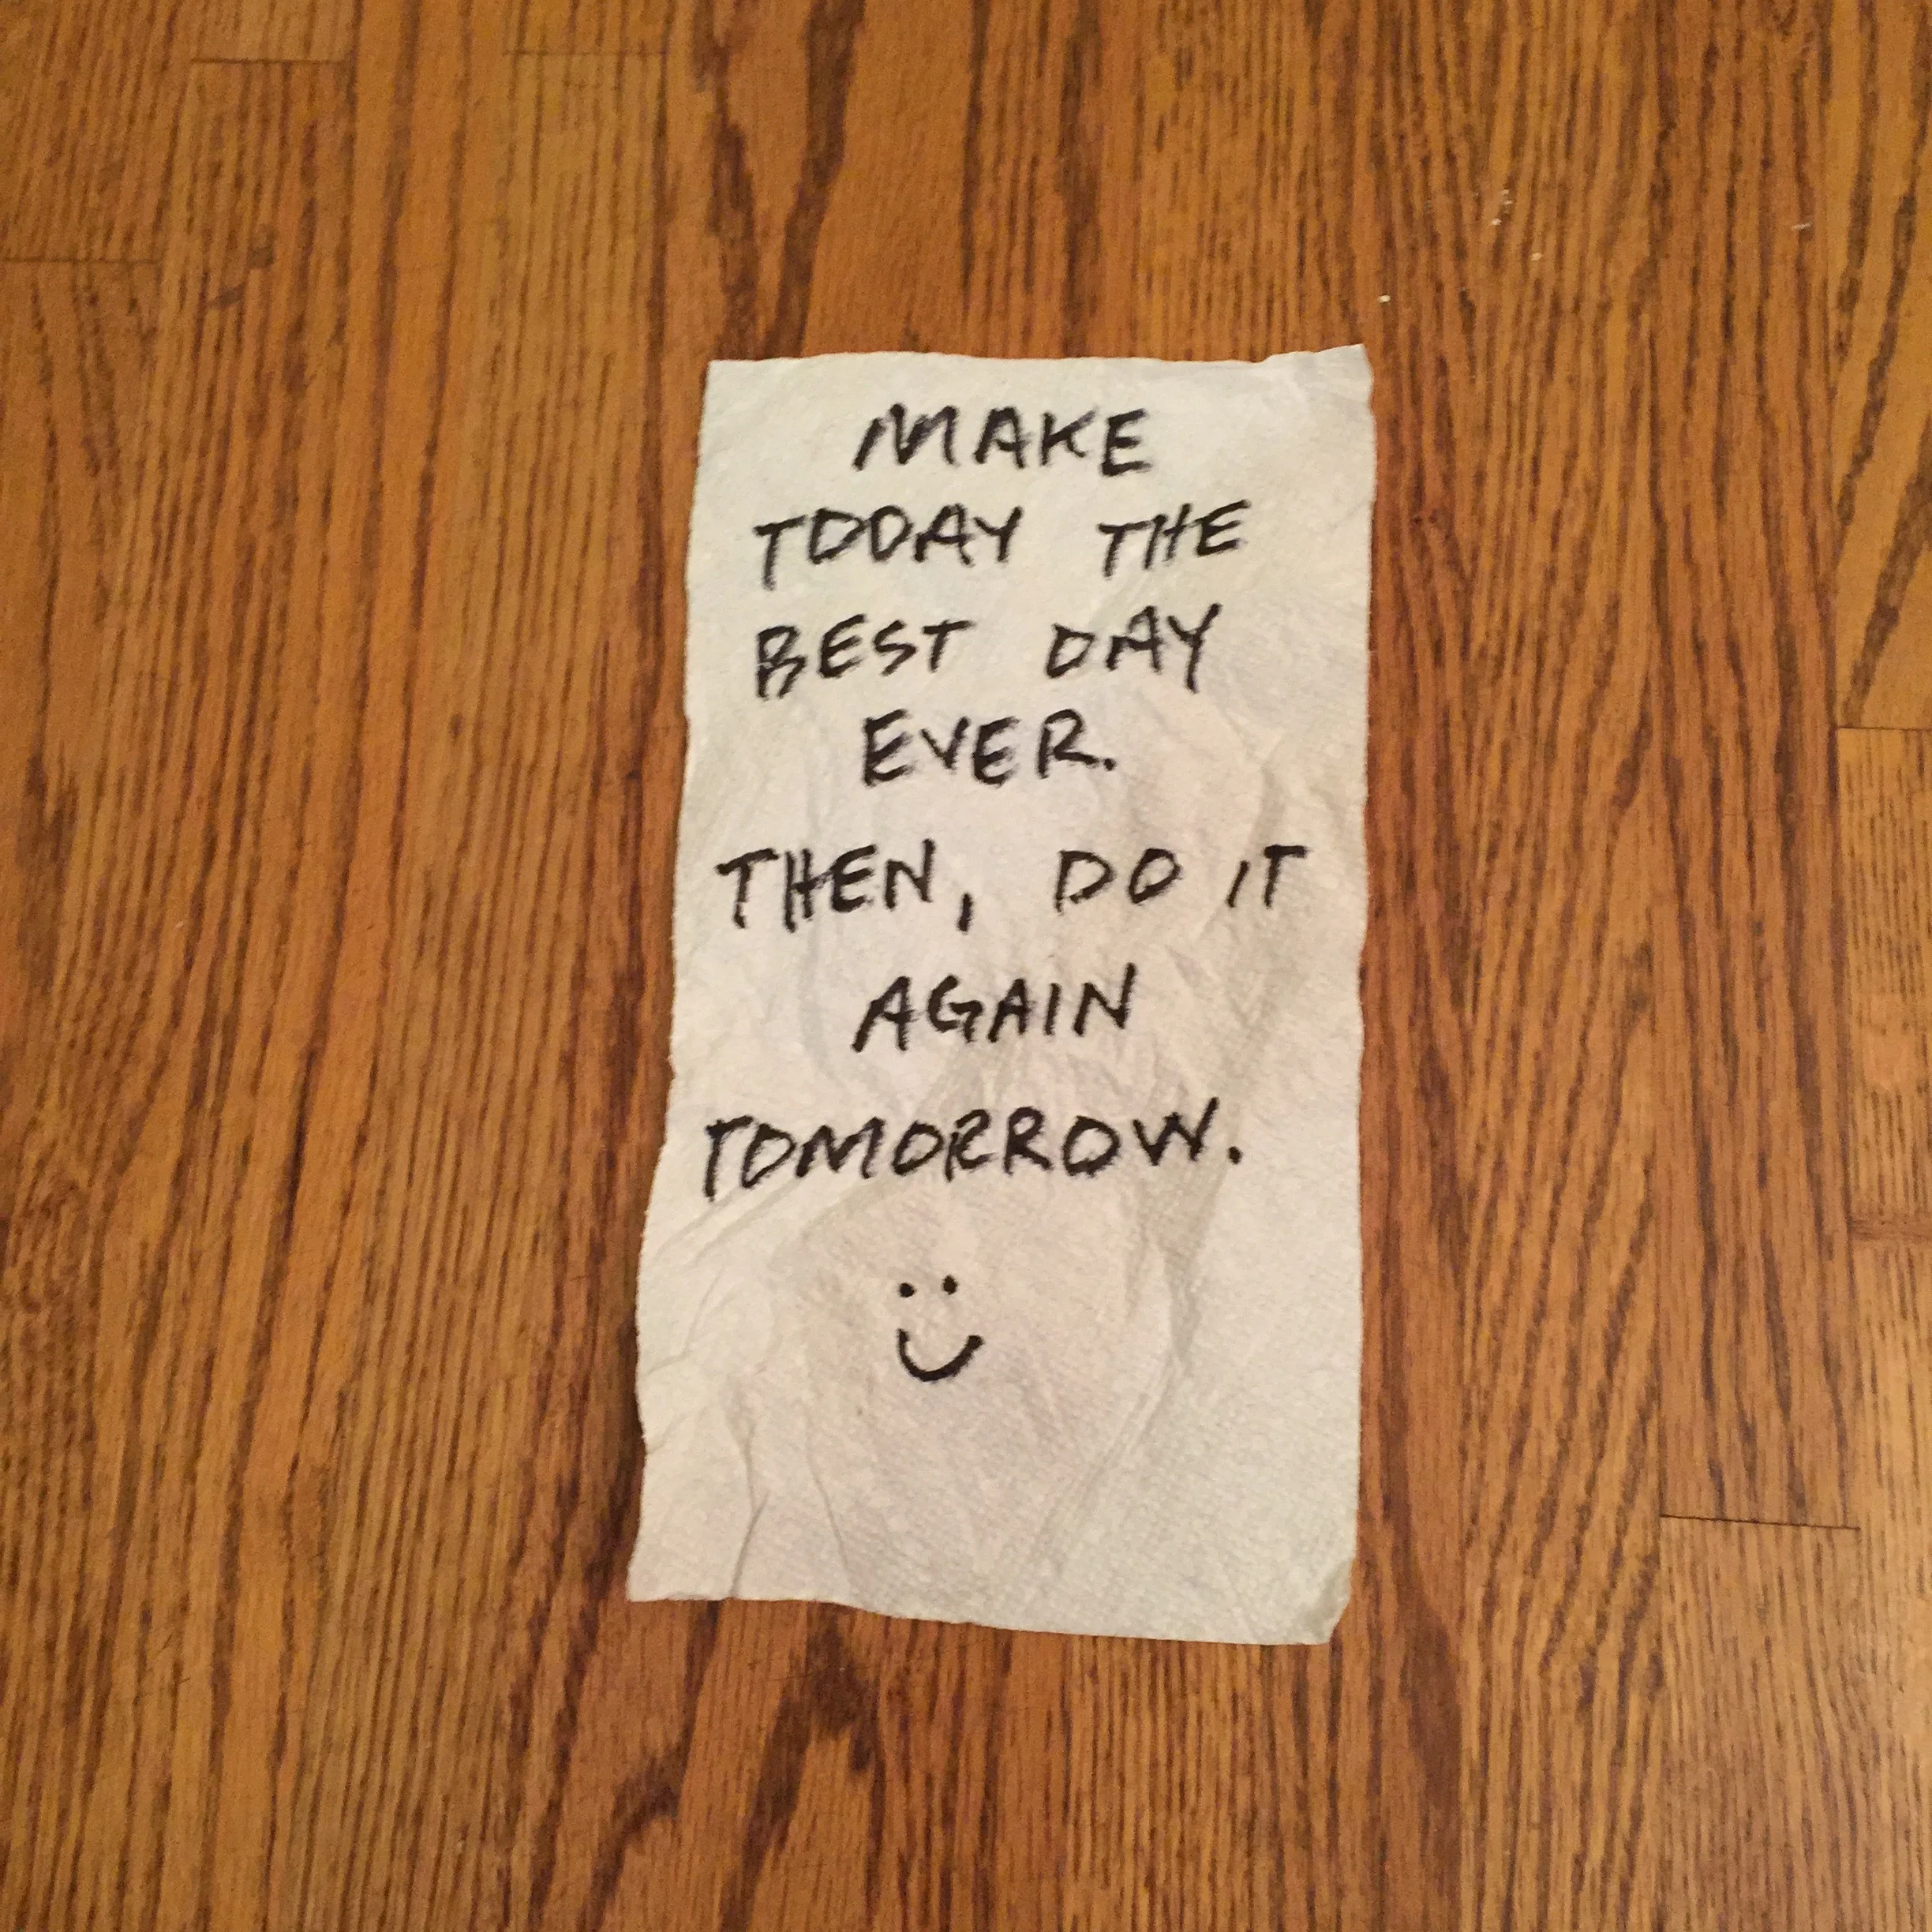 MAKE
TODAY THE
BEST DAY
EVER.
THEN, DO IT
AGAIN
TOMORROW.